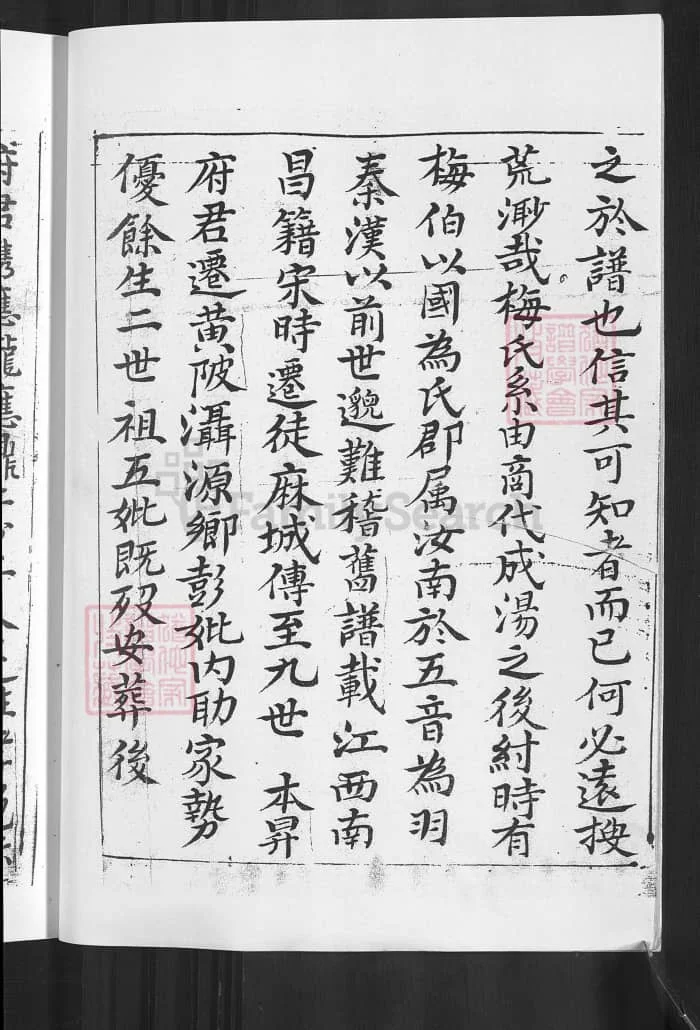 之於譜也信其可知者而已何必遠搜
荒渺哉梅氏系由商代成湯之後紂時有
梅伯以國為氏郡属汝南於五音為羽
秦漢以前世邈難稽舊譜載江西南
昌籍宋時遷徒麻城傳至九世 本昇
府君遷黃陂灄源鄉彭妣內助家勢
優餘生二世祖五妣既歿安葬後
FamilySearch